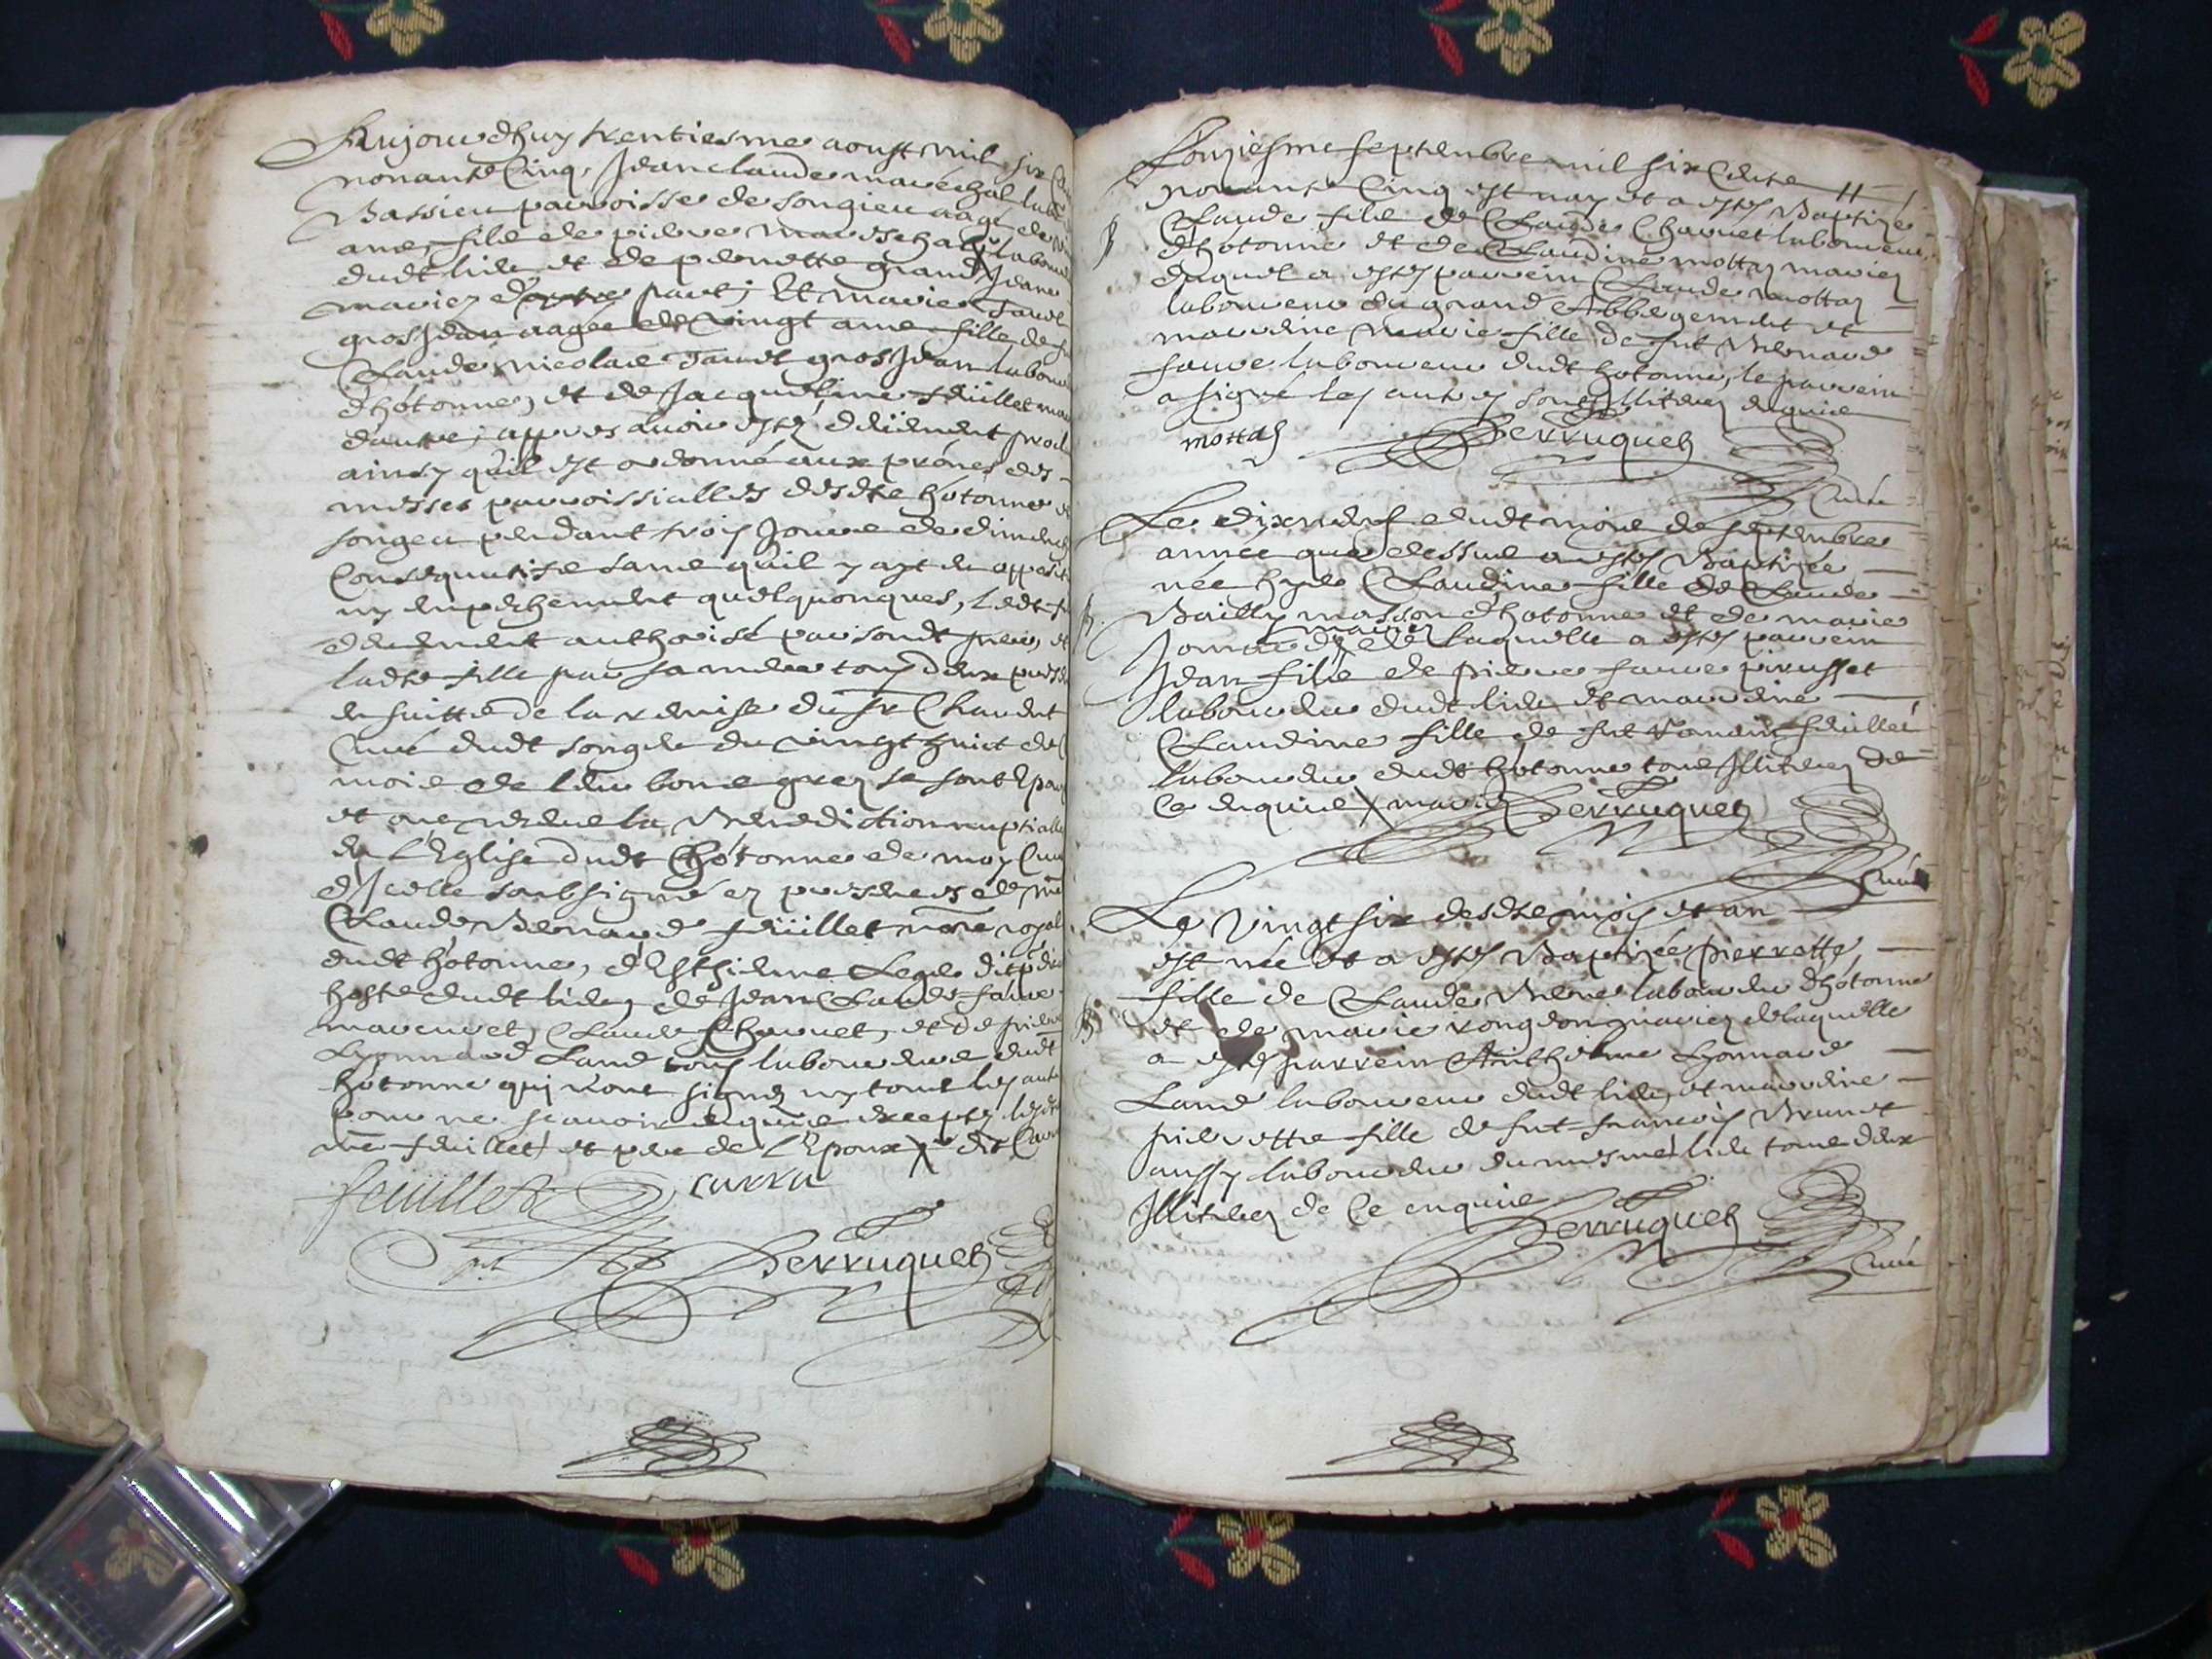 Aujourdhuy trentiesme aoust mil six
nonante Cinq, Jean claude maréchal
Bassieu parroisse de songieu aagé de
ans, fils de pierre mareschal
dudt lieu et de pernette grand Jean
mariez d'autre part; Et marie
gros Jean aagée de vingt ans fille de
Claude nicolas gros Jean
d'hótonne, et de Jacqueline feüillet
d'autre; appres auoir esté deüement
ainsy qu'il est ordonné aux prónes des
messes parroissialles desdts hótonne
songeu pendant trois Jours de
Consequutifs sans qu'il y ayt eu
ny empechement quelquonques, ledt
deuement authorisé par sondt pere, et
ladte fille par sa mere tous deux
en suitte de la remise du sr Chaudet
Curé dudt songeu du vingt huict du
mois de leur bons grez se sont
et ont receue la Benediction nuptialle
en l'Eglise dudt hótonne de moy
d'Jcelle soubsigné ez presences de me
Claude Bernard feüillet nore royal
dudt hótonne, d'Esthienne Lege dit
hoste dudt lieu, de Jean Claude faure
Claude Chauuet, et de pierre
Lyonnard Land tous laboureurs dudt
hótonne qui n'ont signé ny tous les
pour ne scauoir enquis excepté
me feüillet et pere de l'Epoux
feüillet curra
Perruquet
Lonziesme septembre mil six Cents
nonante Cinq est nay et a esté Baptizé
Claude fils de Claude Chauuet laboureur
d'hotonne et de Claudine mottaz mariez
duquel a esté parrein Claude mottaz
laboureur du grand Abbergement et
marrene marie fille de fut Bernard
faure laboureur dudt hotonne, le parrein
a signé les autres sont Illiterez enquis
mottaz Perruquet
Curé
Le dixneuf dudt mois de septembre
année que dessus a esté Baptizée
née hyer Claudine fille de Claude
Bailly masson d'hotonne et de marie
mariez
laquelle a esté parrein
Jean fils de pierre faure
laboureur dudt lieu et marrene
Claudine fille de fut feüillet
laboureur dudt hotonne tous Illiterez de
Ce enquis mariez Perruquet
Curé
Le Vingt six desdts mois et an
est née et a esté Baptizée pierrette
fille de Claude Bene laboureur d'hótonne
et de marie mariez de laquelle
a esté parrein Anthelme Lyonnard
Land laboureur dudt lieu, et marrene
pierrette fille de fut francois Brunet
aussy laboureur du mesme lieu tous deux
Illiterez de Ce enquis
Perruquet
Curé